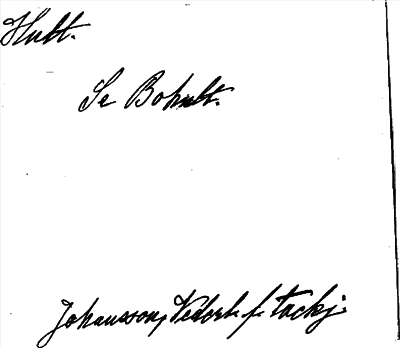 Hult.
Se Bohult.
Johansson, Vederl. f. Tackj.